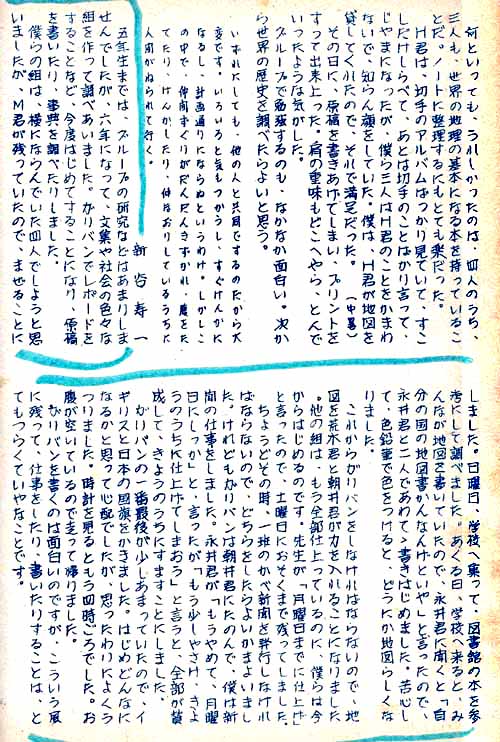 何といっても、うれしかったのは、四人のうち、
三人も、世界の地理の基本になる本を持っているこ
とだ。ノートに整理するにもとても楽だった。
H君は、切手のアルバムばっかり見ていて、すこ
しだけしらべて、あとは切手のことばかり言って、
じゃまになったが、僕ら三人はH君のことをかまわ
ないで、知らん顔をしていた。僕は、H君が地図を
貸してくれたので、それで満足だった。（中畧）
その日に、原稿を書きあげてしまい、プリントを
すって出来上った。肩の重味もどこへやら、とんで
いったような気がした。
グループで勉強するのも、なかなか面白い。次か
ら世界の歴史を調べたらよいと思う。
いずれにしても、他の人と共同でするのだから大
変です。いろいろと気もつかうし、すぐけんかに
なるし、計画通りにならぬというわけ。しかしこ
の中で、仲間ずくりがだんだんきずかれ、腹をた
てたり、けんかしたり、仲なおりしているうちに
人間がねられて行く。
新谷寿一
五年生までは、グループの研究などはあまりしま
せんでしたが、六年になって、文集や社会の色々な
組を作って調べあいました。がりバンでレポートを
することなど、今度はじめてすることになり、原稿
を書いたり、事典を調べたりしました。
僕らの組は、横にならんでいた四人でしようと思
いましたが、M君が残っていたので、まぜることに
しました。日曜日、学校へ集って、図書館の本を参
考にして調べました。あくる日、学校へ来ると、み
んなが地図を書いていたので、永井君に聞くと「自
分の国の地図書かんなんけといや」と言ったので、
永井君と二人であわてゝ書きはじめました。苦心し
て、色鉛筆で色をつけると、どうにか地図らしくな
りました。
これからがりバンをしなければならないので、地
図を荒木君と朝井君が力を入れることになりました
。他の組は、もう全部仕上っているのに、僕らは今
からはじめるのです。先生が「月曜日までに仕上げ」
と言ったので、土曜日におそくまで残ってしました。
ちょうどその時、一班のかべ新聞を発行しなけれ
ばならないので、どちらをしたらよいかまよいまし
た。けれどもがりバンは朝井君にたのんで、僕は新
聞の仕事をしました。永井君が「もうやめて、月曜
日にしっか」と、言ったが「もう少しやさけ、きょ
うのうちに仕上げてしまおう」と言うと、全部が賛
成して、きょうのうちにすますことにしました。
がりバンの一番最後が少しあまっていたので、イ
ギリスと日本の國旗をかきました。はじめどんなに
なるかと思って心配でしたが、思ったわりによくう
つりました。時計を見るともう四時ごろでした。お
腹が空いているので走って帰りました。
がりバンを書くのは面白いのですが、こういう風
に残って、仕事をしたり、書いたりすることは、と
てもつらくていやなことです。